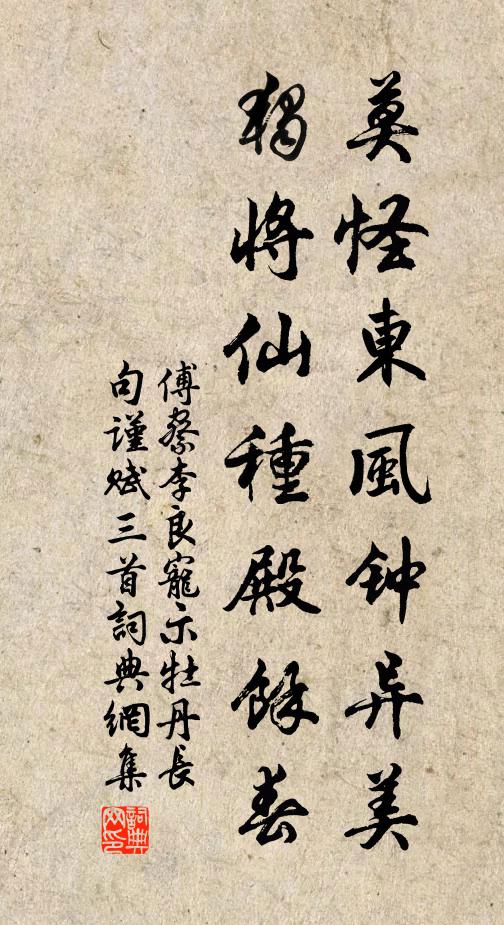 莫怪東風钟异美
獨將仙種殿餘春
傅察李良寵示牡丹長
句謹赋三首詞典網集
詞典网印